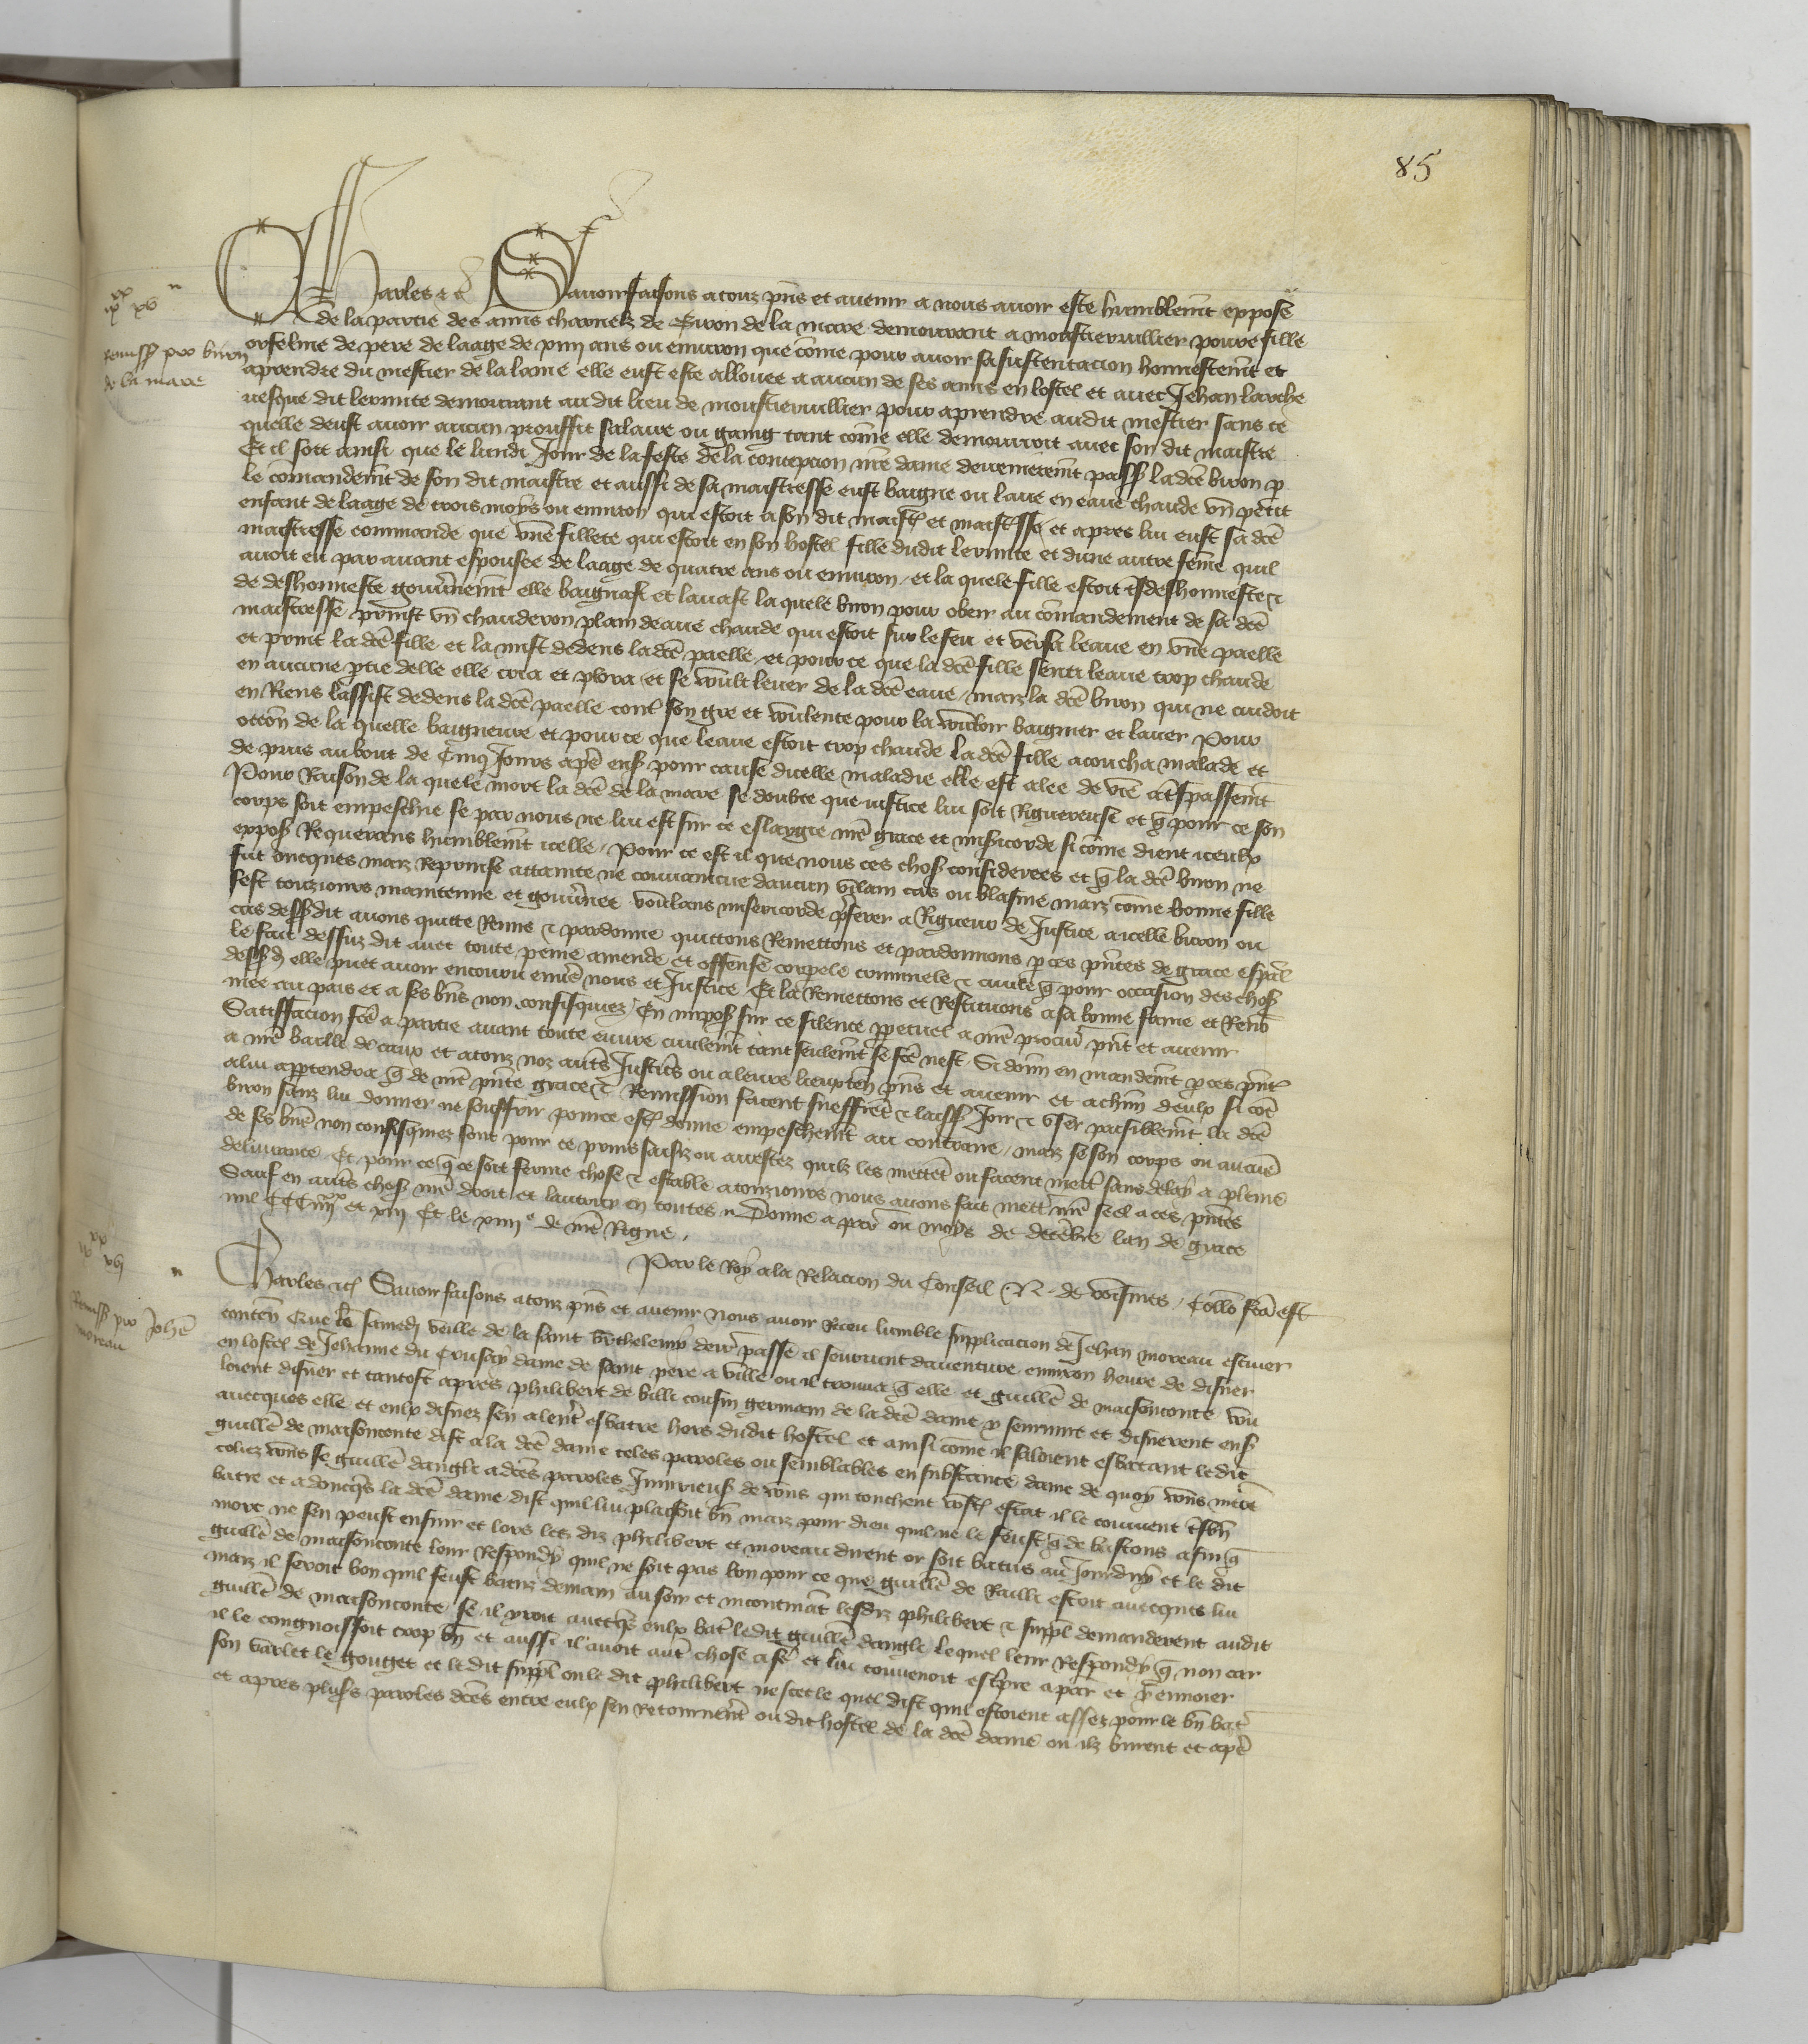 85
Charles etc Savoir faisons a touz pns et avenir a nous avoir este humblemt expose
de la partie des amis charnelz de Biron de la mare demourant a monstiervillier povre fille
orfeline de pere de laage de xiiii ans ou environ que come pour avoir sa sustentacion honnestemt et
aprendre du mestier de la lame elle eust este allouee a aucun de ses amis en lostel et avec Jehan larche
vesque dit lermite demourant audit lieu de monstiervillier pour aprendre audit mestier sans ce
quelle deust avoir aucun prouffit salaire ou gaing tant come elle demourroit avec son dit maistre
Et il soit ainsi que le lundi Jour de la feste de la concepcion nre dame derreinemt pass ladce biron p
le comandemt de son dit maistre et aussi de sa maistresse eust baigne ou lave en eaue chaude vn petit
enfant de laage de trois moys ou environ qui estoit a son dit maist et maistsse et apres lui eust sa dce
maistresse commande que vne fillete qui estoit en son hostel fille dudit lermite et dune autre feme quil
avoit eu par avant espousee de laage de quatre ans ou environ / et la quele fille estoit tsdeshonneste &
de deshonneste gouvnemt elle baignast et lavast la quele biron pour obeir au comandement de sa dce
maistresse / prinst vn chauderon plain deaue chaude qui estoit sur le feu et versa leaue en vne paelle
et print la dce fille et la mist dedens ladce paelle / et pour ce que la dce fille senti leaue trop chaude
en aucune ptie delle elle cria et plora et se voult lever de la dce eaue / maiz la dce biron qui ne cuidoit
en Riens lassist dedens la dce paelle cont son gre et voulente pour la vouloir baigner et laver Pour
occon de la quelle baigneure et pour ce que leaue estoit trop chaude la dce fille acoucha malade et
de puis au bout de Cinq Jours ape ens pour cause dicelle maladie elle est alee de vie a tspassemt
Pour Raison de la quele mort la dce de la mare se doubte que justice lui soit Rigureuse et q pour ce son
corps soit empeschie se par nous ne lui est sur ce eslargie nre grace et misicorde si come dient iceulx
expos Requerans humblemt icelle / Pour ce est il que nous ces chos considerees et q la dce biron ne
fut oncques maiz Reprinse attainte ne convaincue daucun vilain cas ou blasme maiz come bonne fille
sest touzjours maintenue et gouvnee voulans misericorde pferer a Rigueur de Justice a icelle biron ou
cas dessdit avons quitte Remis & pardonne quittons Remettons et pardonnons p ces pntes de grace espal
le fait dessuz dit avec toute peine amende et offense corpele criminele & civile q pour occasion des chos
dessd elle puet avoir encouru envs nous et Justice Et la Remettons et Restituons a sa bonne fame et Reno
mee au pais et a ses bns non confisquiez / En impos sur ce silence ppetuel a nre procur pnt et avenir
Satisfacion fce a partie avant toute euvre civilemt tant seulemt se fce nest Si donn en mandemt p ces pnt
a nre bailli de caux et a touz noz auts Justicrs ou a leurs lieuxten pns et avenir et a chun deulx si coe
a lui apptendra q de nre pnte grace & Remission facent sueffret & laiss Joir & vser paisiblemt la dce
biron sanz lui donner ne souffrir ponce est donne empeschemt au contraire / maiz se son corps ou aucuns
de ses bns non confisquiez sont pour ce prins saisiz ou arrestez quilz les mettet ou facent mett sans delay a pleine
delivrance Et pour ce q ce soit ferme chose & estable a touzjours nous avons fait mett nre seel a ces pntes
Sauf en auts choses nre droit et lautruy en toutes Donne a par ou moys de decebre lan de grace
mil CCC iiiixx et xiii Et le xiiiie de nre Regne
Par le Roy a la Relacion du Conseil N. de voisines / Collon fca est
Charles etc Savoir faisons a touz pns et avenir nous avoir Receu lumble supplicacion de Jehan moreau escuier
conten Que le samedi veille de la saint Brthelemy derr passe il sourvint daventure environ heure de disner
en lostel de Jehanne du Crusay dame de saint pere a ville ou il trouva q elle et guille de maisonconte vou
loient disner et tantost apres philibert de billi cousin germain de la dce dame y sourvint et disnerent ens
avecques elle et eulx disnez sen alert esbatre hors dudit hostel et ainsi come il saloient esbatant le dit
guille de maisonconte dist a la dce dame teles paroles ou semblables en substance dame de quoy vous mere
coliez vous se guille dangle a dces paroles Injurieus de vous qui touchent vost estat il le convient tsbn
batre et adoncqs la dce dame dist quil lui plaisoit bn maiz pour dieu quil ne le feust q de bastons afin q
mort ne sen peust ensuir et lors lez diz philibert et moreau dirent or soit batus au Jourduy et le dit
guille de maisonconte leur Respondy quil ne soit pas bon pour ce que guille de Railli estoit avecques lui
maiz il seroit bon quil feust batuz demain au soir et incontinat lesdiz philibert & suppl demanderent audit
guille de maisonconte se il yroit avecqs eulx bat ledit guille dangle lequel leur Respondy q non car
il le congnoissoit trop bn et aussi il avoit aut chose a fe et lui convenoit escpre a par et y envoier
son varlet le gouget et le dit suppl ou le dit philibert ne scet le quel dist quil estoient assez pour le bn bat
et apres pluss paroles dces entre eulx sen Retournert ou dit hostel de la dce dame ou ilz burent et ape
ix xv
Remiss pro biron
de la mare
ix xvj
Remiss pro Johe
moreau